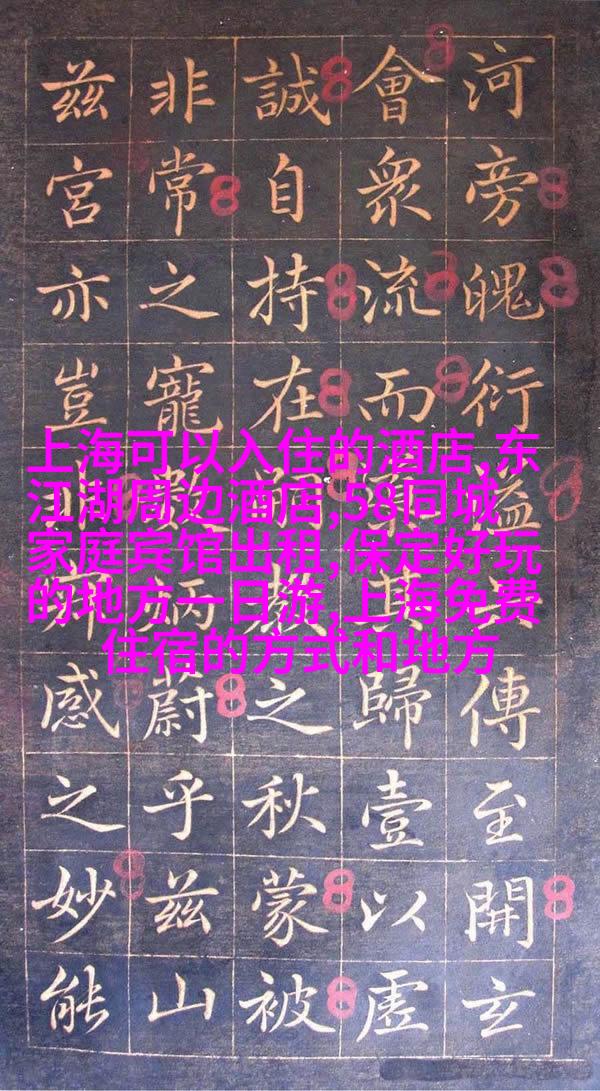 上海可以入住的酒店,东
江湖周边酒店,58同城
家庭宾馆出租,保定好玩
的地方一日游,上海免费
住宿的方式和地方
河旁魄衍溢傳至開玄
會衆流而其歸壹以虛
誠自持在嗣教之秋蒙被
非常之寵炳蔚乎茲山
茲宮亦豈感之妙能